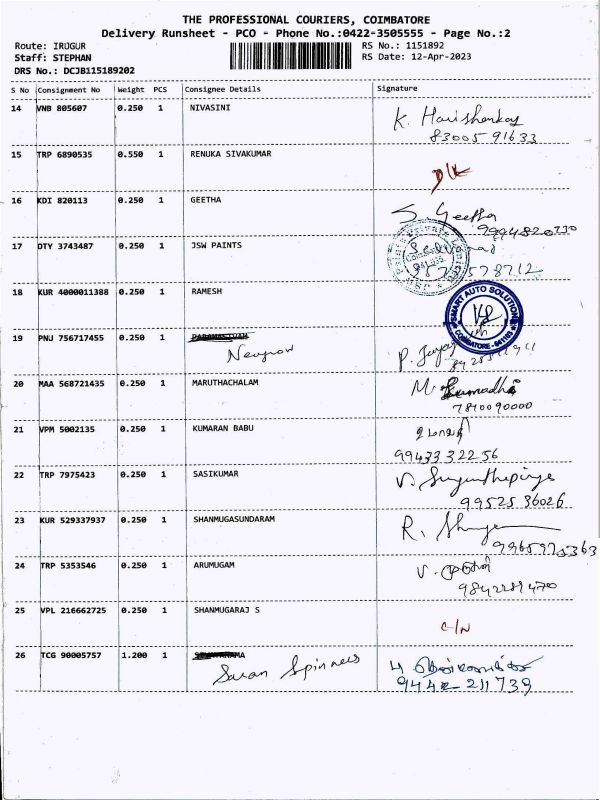 THE PROFESSIONAL COURIERS, COIMBATORE
Delivery Runsheet - PCO - Phone No.:0422-3505555 - Page No.:2
Route: IRUGUR
Staff: STEPHAN
DRS No.: DCJB115189202
RS No.: 1151892
RS Date: 12-Apr-2023
S No Consignment No Weight PCS Consignee Details Signature
14 VNB 805607 0.250 1 NIVASINI K. Harishankar
83005 91633
15 TRP 6890535 0.550 1 RENUKA SIVAKUMAR D/K
16 KDI 820113 0.250 1 GEETHA S. Geetha
9994820730
17 OTY 3743487 0.250 1 JSW PAINTS
18 KUR 4000011388 0.250 1 RAMESH
SMART AUTO SOLUTION
COIMBATORE
19 PNJ 756717455 0.250 1
20 MAA 568721435 0.250 1 MARUTHACHALAM M.
7810090000
21 VPM 5002135 0.250 1 KUMARAN BABU
99433 322 56
22 TRP 7975423 0.250 1 SASIKUMAR
99525 36026
23 KUR 529337937 0.250 1 SHANMUGASUNDARAM R.
9965975363
24 TRP 5353546 0.250 1 ARUMUGAM
25 VPL 216662725 0.250 1 SHANMUGARAJ S C/N
26 TCG 90005757 1.200 1 Saran Spinners
9442-211739